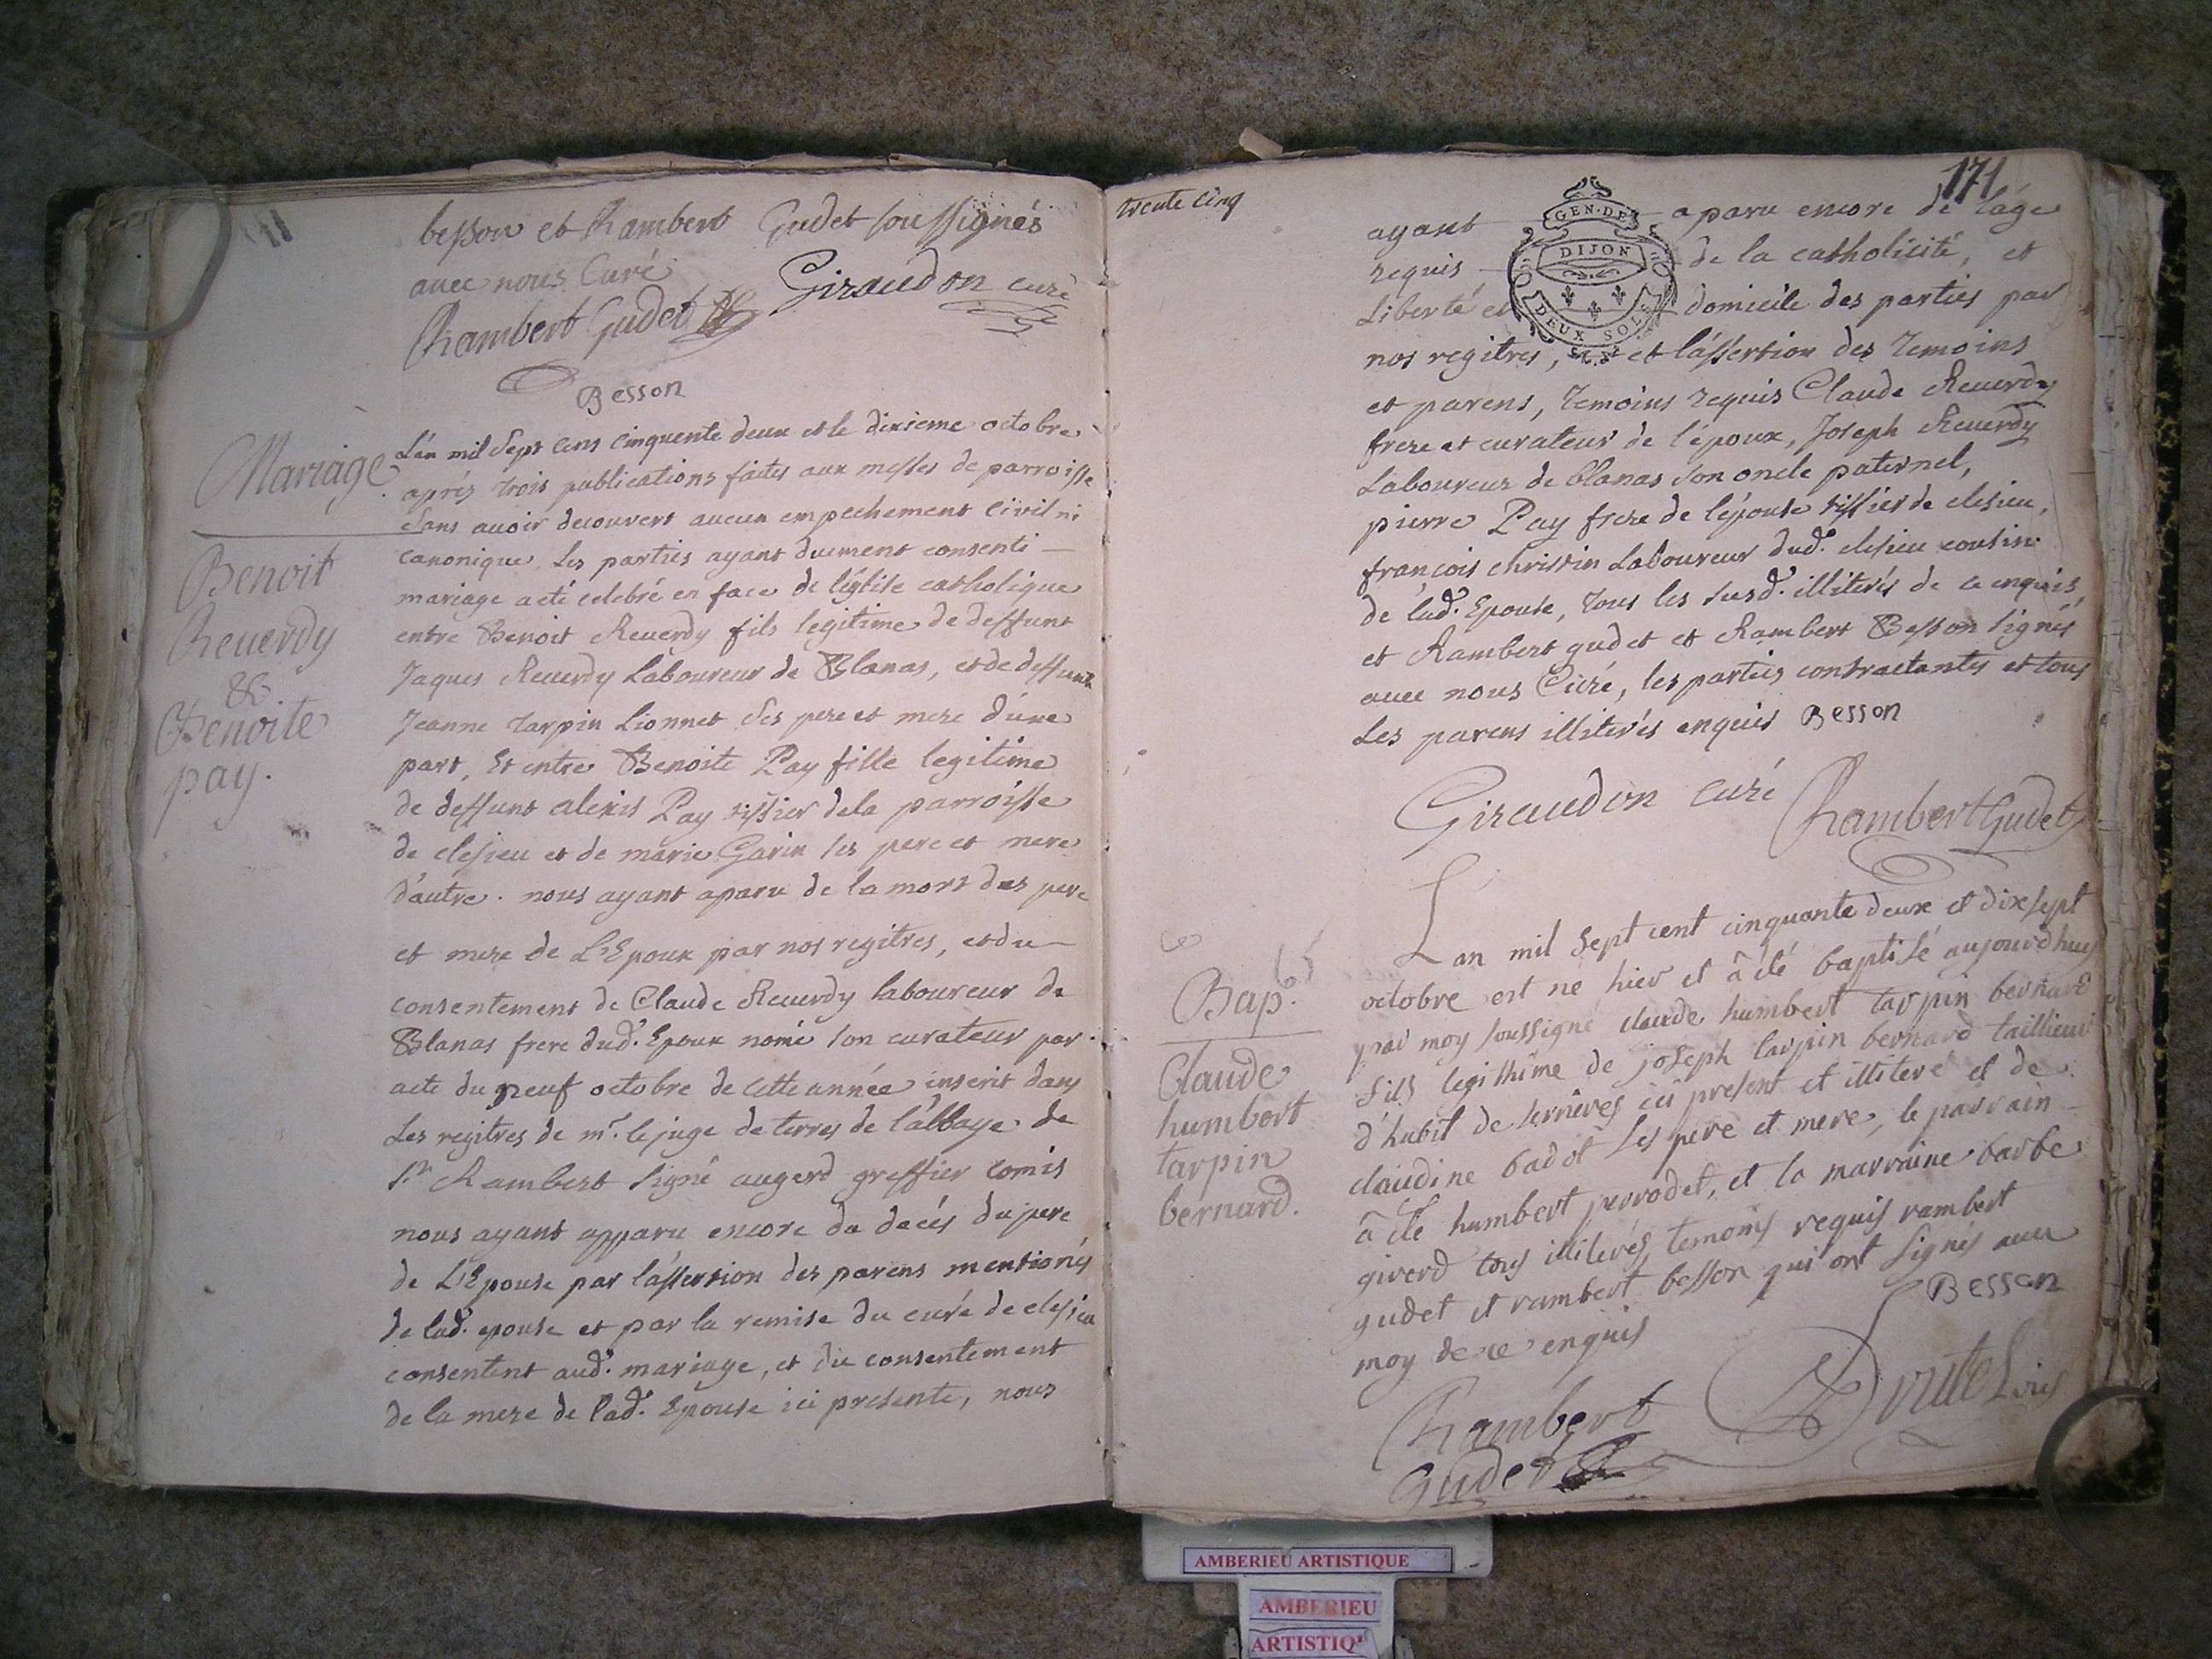 besson et Rambert Gudet soussignés
avec nous Curé
Giraudon curé
Rambert Gudet
Besson
Mariage
Benoit
Reuerdy
&
Benoite
pay.
L'an mil sept cens cinquente deux et le dixieme octobre
aprés trois publications faites aux messes de parroisse
sans auoir decouvert aucun empechement civil ni
canonique, les parties ayant duement consenti
mariage a eté celebré en face de l'église catholique
entre Benoit Reuerdy fils legitime de deffunt
Jaques Reuerdy Laboureur de Blanas, et de deffunte
Jeanne tarpin Lionnet ses pere et mere d'une
part, Et entre Benoite Pay fille legitime
de deffunt alexis Pay tissier de la parroisse
de clesieu et de marie Garin ses pere et mere
d'autre. nous ayant aparu de la mort des pere
et mere de L'Epoux par nos regitres, et du
consentement de Claude Reuerdy laboureur de
Blanas frere dud. Epoux nomé son curateur par
acte du neuf octobre de cette année inserit dans
Les regitres de mr. le juge de terres de l'abbaye de
st Rambert signé augerd greffier comis
nous ayant apparu encore du decés du pere
de L'Epouse par l'assertion des parens mentionés
de lad. epouse et par la remise du curé de clesieu
consentent aud. mariage, et du consentement
de la mere de lad. Epouse ici presente, nous
trente cinq
171
GEN·DE
DIJON
DEUX SOLS
ayant aparu encore de l'áge
requis de la catholicité, et
Liberté et domicile des parties par
nos regitres, et l'assertion des temoins
et parens, temoins requis Claude Reuerdy
frere et curateur de l'époux, Joseph Reuerdy
Laboureur de blanas son oncle paternel,
pierre Pay frere de l'épouse tissier de clesieu,
francois christin Laboureur dud. clesieu cousin
de lad. Epouse, tous les susd. illiterés de ce enquis,
et Rambert gudet et Rambert Besson signés
auec nous Curé, les parties contractantes et tous
Les parens illiterés enquis Besson
Giraudon curé
Rambert Gudet
Bap.
Claude
humbert
tarpin
bernard.
Lan mil sept cent cinquante deux et dixsept
octobre est ne hier et â été baptisé aujourdhuy
par moy soussigné claude humbert tarpin bernard
fils legithime de joseph tarpin bernard taillieur
d'habit de serrieres ici present et illiteré et de
claudine badot ses pere et mere, le parrain
â été humbert perrodet, et la marraine barbe
giverd tous illiterés, temoins requis rambert
gudet et rambert besson qui ont signés auec
moy de ce enquis
Besson
Rambert
Gudet